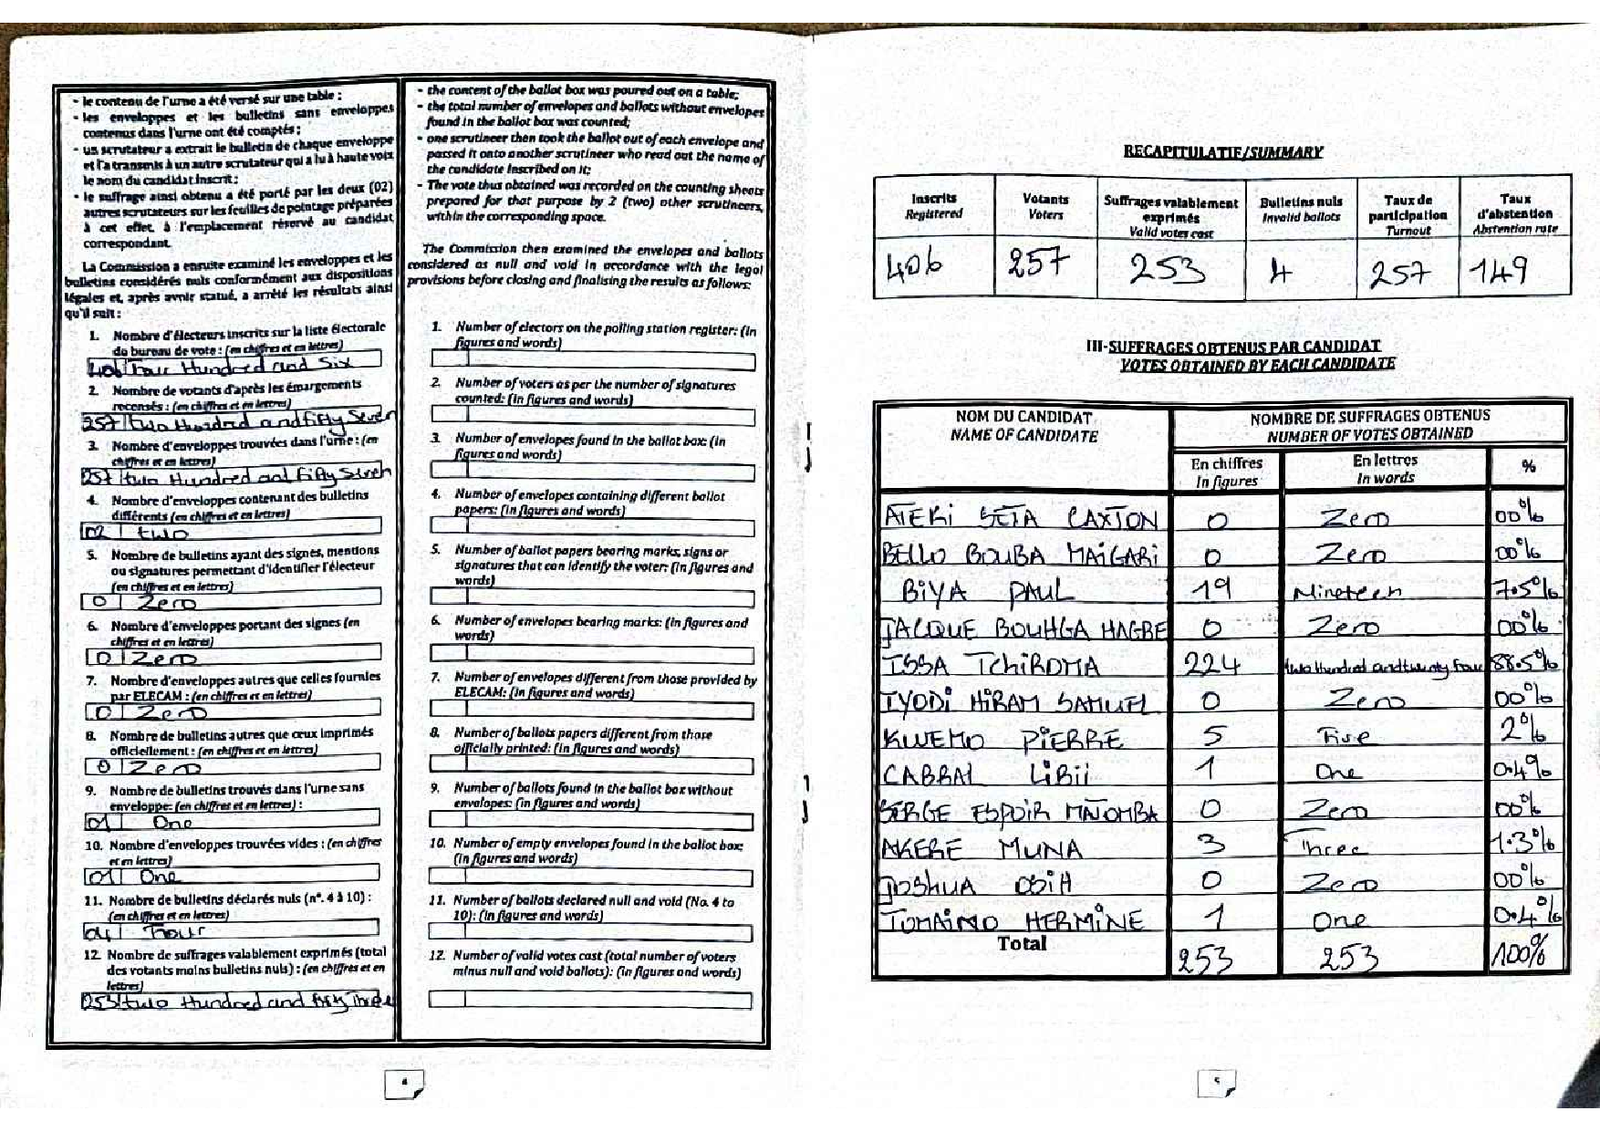 - le contenu de l'urne a été versé sur une table :
- les enveloppes et les bulletins sans enveloppes
contenus dans l'urne ont été comptés ;
- un scrutateur a extrait le bulletin de chaque enveloppe
et l'a transmis à un autre scrutateur qui a lu à haute voix
le nom du candidat inscrit ;
- le suffrage ainsi obtenu a été porté par les deux (02)
autres scrutateurs sur les feuilles de pointage préparées
à cet effet, à l'emplacement réservé au candidat
correspondant.
La Commission a ensuite examiné les enveloppes et les
bulletins considérés nuls conformément aux dispositions
légales et, après avoir statué, a arrêté les résultats ainsi
qu'il suit :
1. Nombre d'électeurs inscrits sur la liste électorale
du bureau de vote : (en chiffres et en lettres)
406 Four Hundred and Six
2. Nombre de votants d'après les émargements
recensés : (en chiffres et en lettres)
257 two Hundred and fifty Seven
3. Nombre d'enveloppes trouvées dans l'urne : (en
chiffres et en lettres)
257 two Hundred and Fifty Seven
4. Nombre d'enveloppes contenant des bulletins
différents (en chiffres et en lettres)
02 two
5. Nombre de bulletins ayant des signes, mentions
ou signatures permettant d'identifier l'électeur
(en chiffres et en lettres)
0 Zero
6. Nombre d'enveloppes portant des signes (en
chiffres et en lettres)
0 Zero
7. Nombre d'enveloppes autres que celles fournies
par ELECAM : (en chiffres et en lettres)
0 Zero
8. Nombre de bulletins autres que ceux imprimés
officiellement : (en chiffres et en lettres)
0 Zero
9. Nombre de bulletins trouvés dans l'urne sans
enveloppe: (en chiffres et en lettres) :
01 One
10. Nombre d'enveloppes trouvées vides : (en chiffres
et en lettres)
01 One
11. Nombre de bulletins déclarés nuls (n°. 4 à 10) :
(en chiffres et en lettres)
04 Four
12. Nombre de suffrages valablement exprimés (total
des votants moins bulletins nuls) : (en chiffres et en
lettres)
253 two Hundred and fifty three
- the content of the ballot box was poured out on a table;
- the total number of envelopes and ballots without envelopes
found in the ballot box was counted;
- one scrutineer then took the ballot out of each envelope and
passed it onto another scrutineer who read out the name of
the candidate inscribed on it;
- The vote thus obtained was recorded on the counting sheets
prepared for that purpose by 2 (two) other scrutineers,
within the corresponding space.
The Commission then examined the envelopes and ballots
considered as null and void in accordance with the legal
provisions before closing and finalising the results as follows:
1. Number of electors on the polling station register: (in
figures and words)
2. Number of voters as per the number of signatures
counted: (in figures and words)
3. Number of envelopes found in the ballot box: (in
figures and words)
4. Number of envelopes containing different ballot
papers: (in figures and words)
5. Number of ballot papers bearing marks, signs or
signatures that can identify the voter: (in figures and
words)
6. Number of envelopes bearing marks: (in figures and
words)
7. Number of envelopes different from those provided by
ELECAM: (in figures and words)
8. Number of ballots papers different from those
officially printed: (in figures and words)
9. Number of ballots found in the ballot box without
envelopes: (in figures and words)
10. Number of empty envelopes found in the ballot box:
(in figures and words)
11. Number of ballots declared null and void (No. 4 to
10): (in figures and words)
12. Number of valid votes cast (total number of voters
minus null and void ballots): (in figures and words)
4
RECAPITULATIF/SUMMARY
Inscrits Registered | Votants Voters | Suffrages valablement exprimés Valid votes cast | Bulletins nuls Invalid ballots | Taux de participation Turnout | Taux d'abstention Abstention rate
406 257 253 4 257 149
III-SUFFRAGES OBTENUS PAR CANDIDAT
VOTES OBTAINED BY EACH CANDIDATE
NOM DU CANDIDAT NOMBRE DE SUFFRAGES OBTENUS
NAME OF CANDIDATE NUMBER OF VOTES OBTAINED
En chiffres En lettres %
In figures In words
ATEKI SETA CAXTON 0 Zero 00%
BELLO BOUBA MAIGARI 0 Zero 00%
BIYA PAUL 19 Nineteen 7.5%
JACQUE BOUHGA HAGBE 0 Zero 00%
ISSA TCHIROMA 224 two Hundred and twenty four 88.5%
IYODI HIRAM SAMUEL 0 Zero 00%
KWEMO PIERRE 5 Five 2%
CABRAL LIBII 1 One 0.4%
SERGE ESPOIR MATOMBA 0 Zero 00%
AKERE MUNA 3 Three 1.3%
JOSHUA OSIH 0 Zero 00%
TOMAINO HERMINE 1 One 0.4%
Total 253 253 100%
5